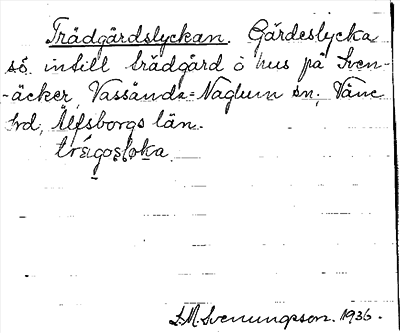 Trädgårdslyckan. Gärdeslycka
sö. intill trädgård o hus på Sven-
-äcker, Vassända-Naglum sn, Väne
hd, Älfsborgs län.
trégoṣloka
S.M. Svenungsson. 1936.